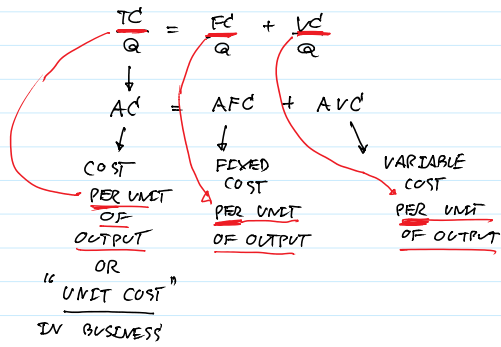 TC/Q = FC/Q + VC/Q
AC = AFC + AVC
COST
PER UNIT
OF
OUTPUT
OR
"UNIT COST"
IN BUSINESS
FIXED
COST
PER UNIT
OF OUTPUT
VARIABLE
COST
PER UNIT
OF OUTPUT